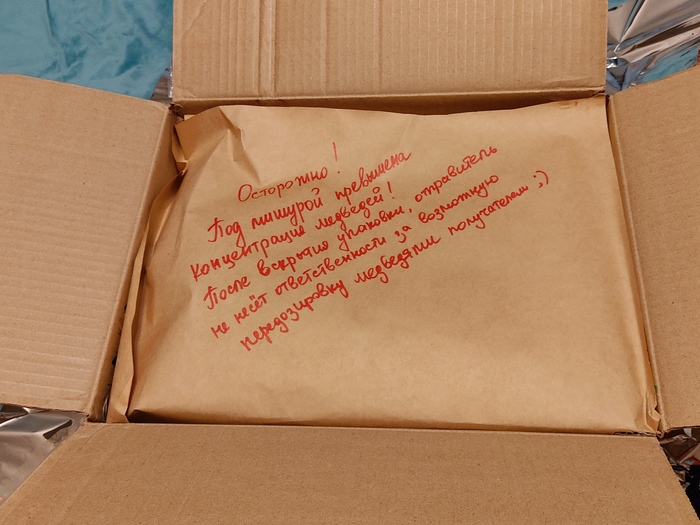 Осторожно!
Под мишурой превышена
концентрация медведей!
После вскрытия упаковки, отправитель
не несёт ответственности за возможную
передозировку медведями получателем ;)